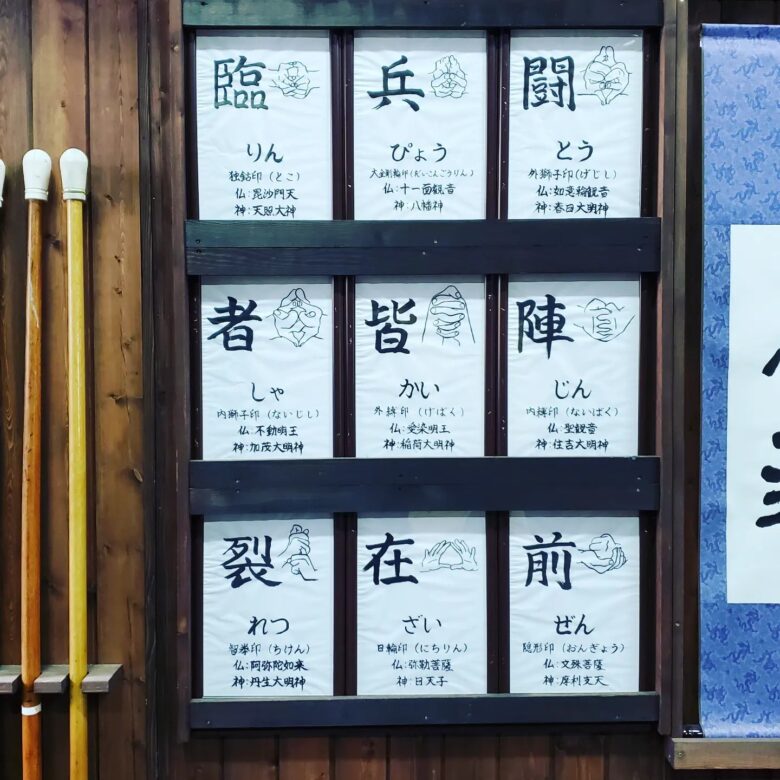 臨
りん
独鈷印(とこ)
仏:毘沙門天
神:天照大神
兵
ぴょう
大金剛輪印(だいこんごうりん)
仏:十一面観音
神:八幡神
闘
とう
外獅子印(げじし)
仏:如意輪観音
神:春日大明神
者
しゃ
内獅子印(ないじし)
仏:不動明王
神:加茂大明神
皆
かい
外縛印(げばく)
仏:愛染明王
神:稲荷大明神
陣
じん
内縛印(ないばく)
仏:聖観音
神:住吉大明神
裂
れつ
智拳印(ちけん)
仏:阿弥陀如来
神:丹生大明神
在
ざい
日輪印(にちりん)
仏:弥勒菩薩
神:日天子
前
ぜん
隠形印(おんぎょう)
仏:文殊菩薩
神:摩利支天